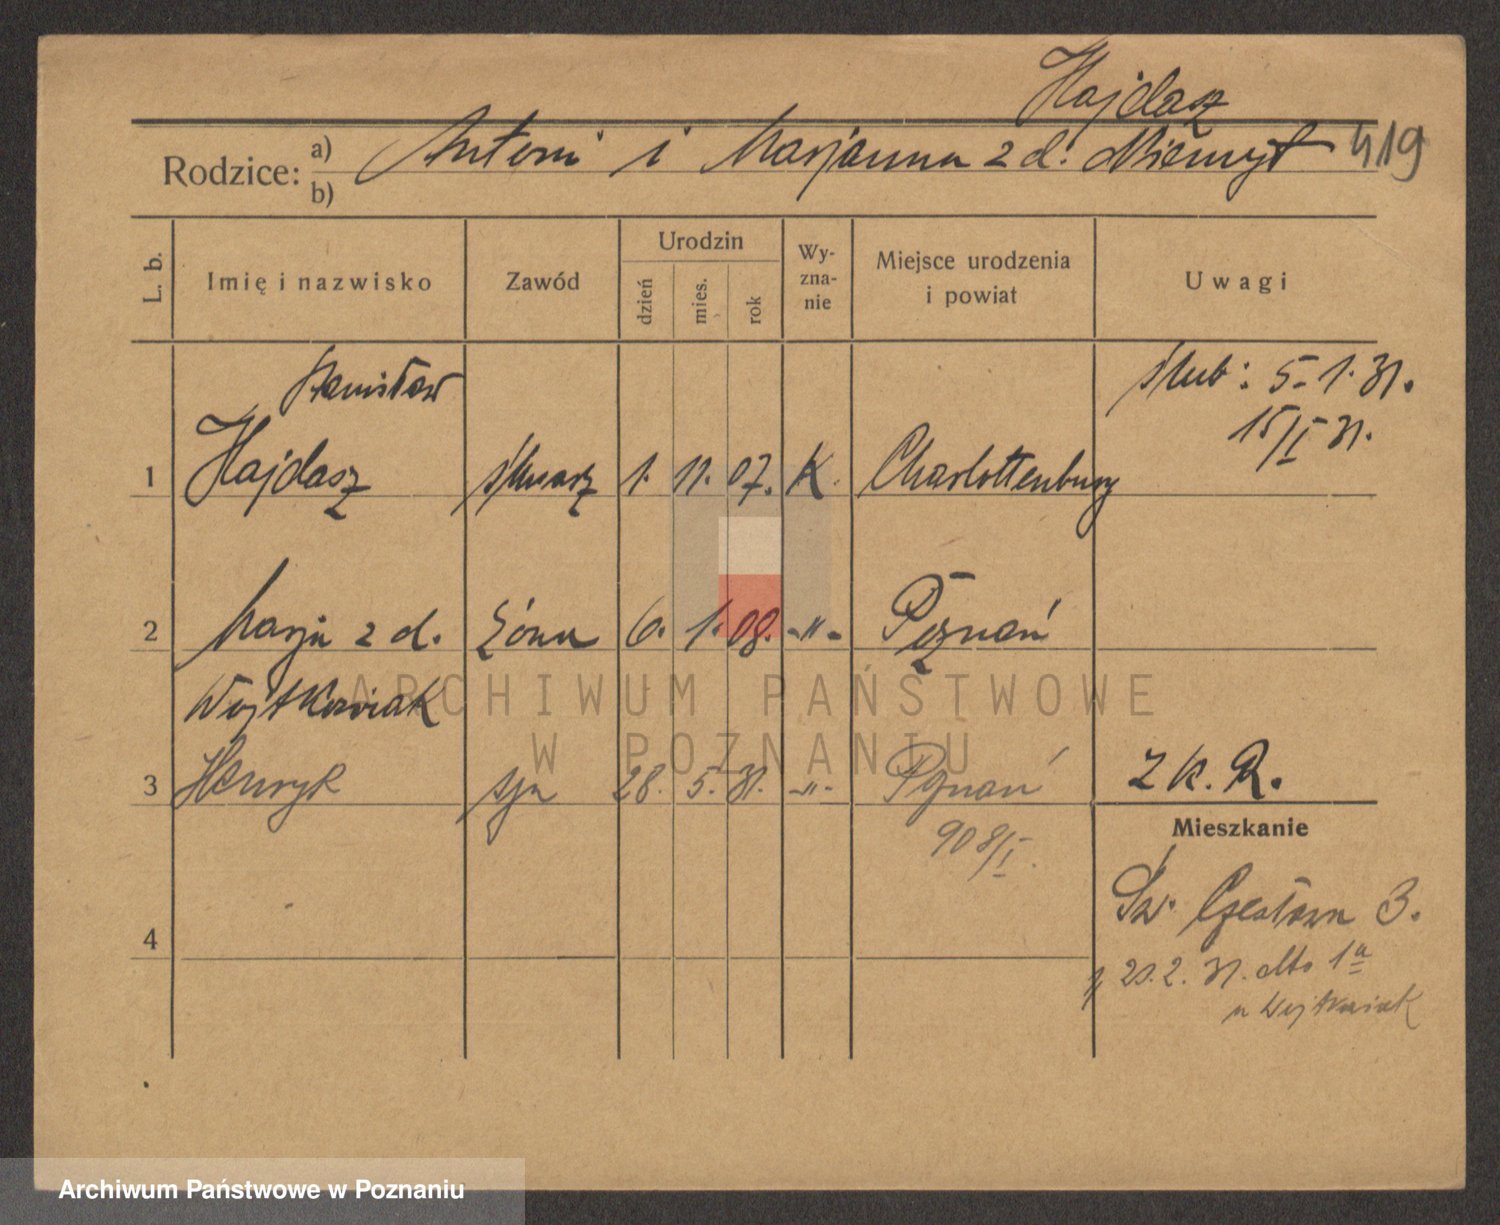 Hajdasz
Rodzice: a) b) Antoni i Marjanna z d. Niemyt 419
L. b. Imię i nazwisko Zawód Urodzin dzień mies. rok Wy-zna-nie Miejsce urodzenia i powiat Uwagi
Stanisław ślub: 5. 1. 31.
15/I 31.
1 Hajdasz ślusarz 1. 11. 07. K. Charlottenburg
2 Marja z d. żona 6. 1. 08. -"- Poznań
Wojtkowiak
3 Henryk syn 28. 5. 31. -"- Poznań Z K. R.
908/I.
Mieszkanie
Św. Czesława 3.
4
2. 31. dto 1a
u Wojtkowiak
ARCHIWUM PAŃSTWOWE
W POZNANIU
Archiwum Państwowe w Poznaniu